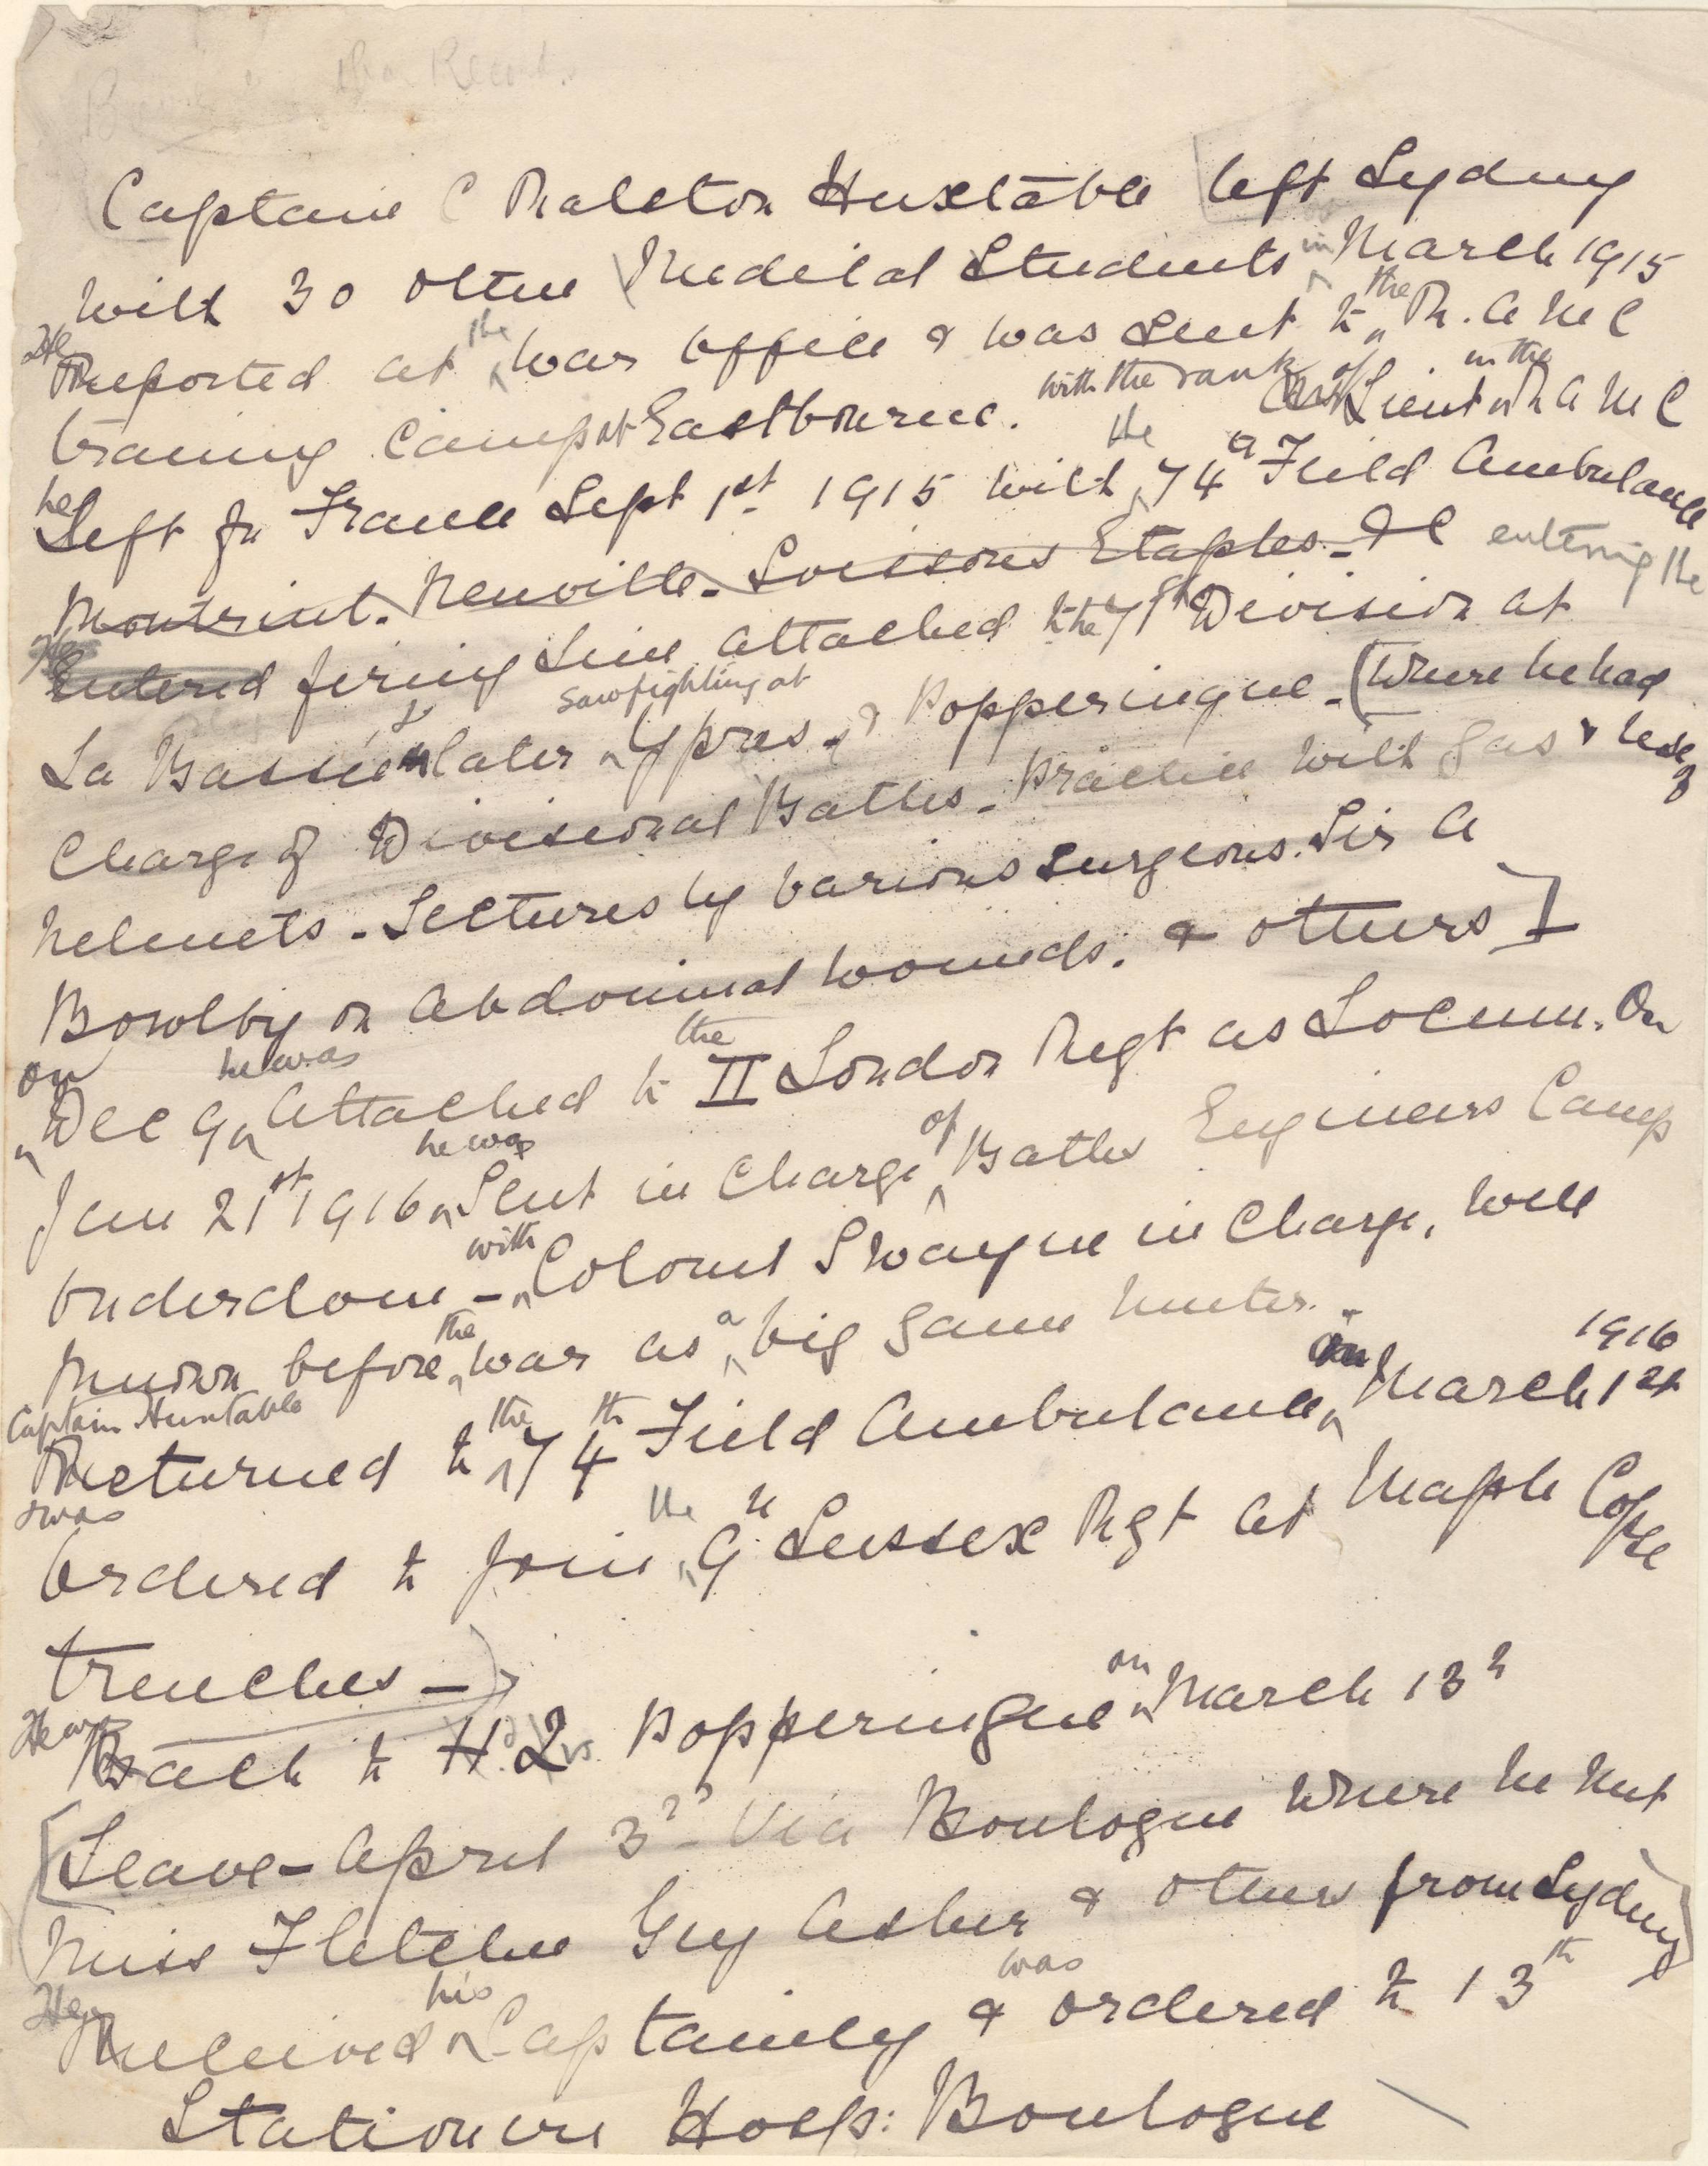 Captain C Ralston Huxtable left Sydney
with 30 other Medical Students in March 1915
He Reported at the War Office & was sent to the R.A.M.C
training Camp at Eastbourne. with the rank of Lieut in the R A M C
he Left for France Sept 1st 1915 with the 74th Field Ambulance
Neuville. Soissons Etaples. entering the
Entered firing Line attached to the 7th Division at
La Bassée & later saw fighting at Ypres. & Popperingue. (Where he had
Charge of Divisional Baths. Practice with Gas & use of
helmets. Lectures by various surgeons. Sir A
Bowlby on Abdominal wounds. & others]
On Dec 9 he was attached to the II London Regt as Locum. On
Jan 21st 1916 he was Sent in Charge of Baths Engineers Camp
Ouderdom - with Colonel Swayne in Charge, well
known before the war as a big Game hunter.
Captain Huxtable Returned to the 74th Field Ambulance in March 1st 1916
& was Ordered to join the 9th Sussex Rgt at Maple Copse
trenches -
Back to H.Q. Popperingue on March 13th
[Leave - April 3rd Via Boulogne where he met
Miss Fletcher Guy Asher & others from Sydney]
He Received his Captaincy & was ordered to 13th
Stationary Hosp: Boulogne